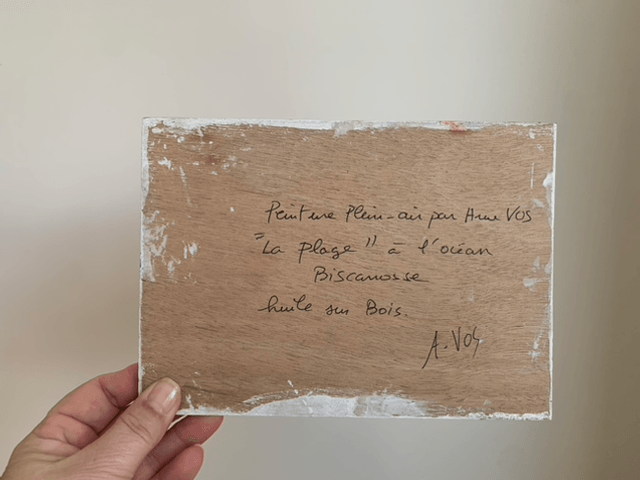 Peinture Plein-air par Anne VOS
"La plage" à l'océan
Biscarrosse
huile sur Bois.
A. VOS